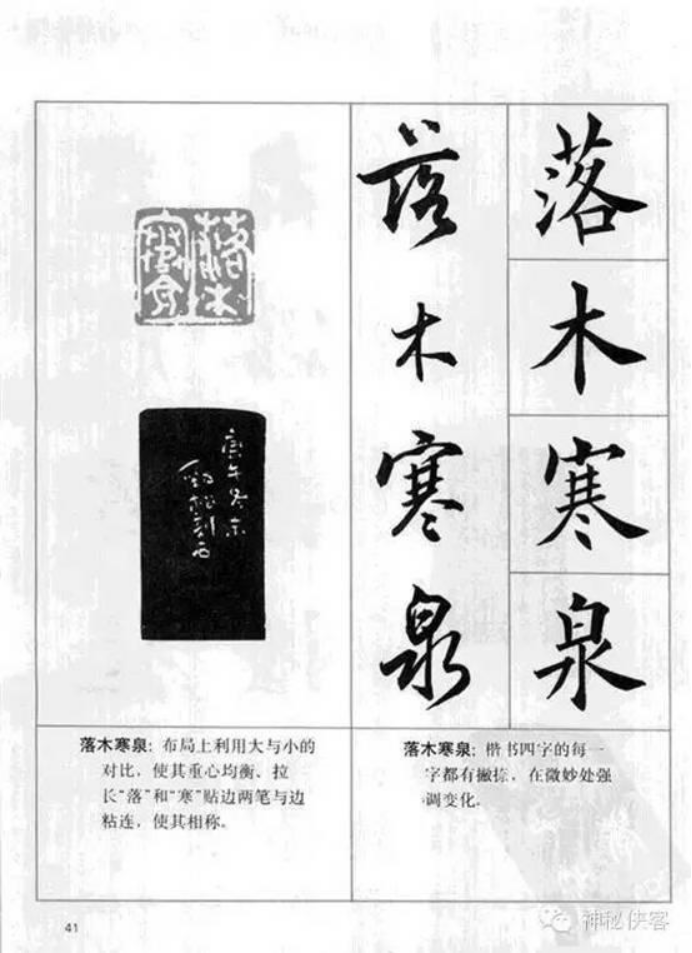 落木寒泉
落木寒泉
落木寒泉
庚午冬末
刻石
落木寒泉：布局上利用大与小的
对比，使其重心均衡、拉
长“落”和“寒”贴边两笔与边
粘连，使其相称。
落木寒泉：楷书四字的每一
字都有撇捺，在微妙处强
调变化。
41
神秘侠客